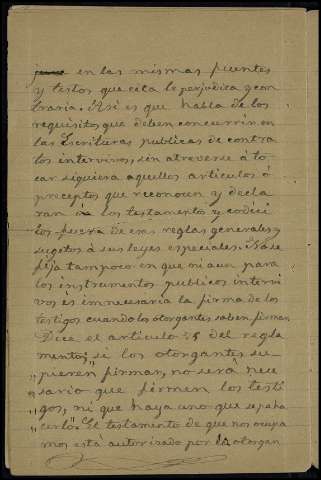 en las mismas fuentes
y testos que cita le perjudica y con
traria. Asi es que habla de los
requisitos que deben concurrir en
las Escrituras publicas de contra
tos intervivos, sin atreverse á to
car siquiera aquellos articulos ó
preceptos que reconocen y decla
ran los testamentos y codici
los fuera de esas reglas generales y
sugetos á sus leyes especiales. No se
fija tampoco en que ni aun para
los instrumentos publicos intervi
vos es imnecesaria la firma de los
testigos cuando los otorgantes saben firmar.
Dice el articulo del regla
mento; si los otorgantes su
"pieren firmar, no será nece
"sario que firmen los testi
"gos, ni que haya uno que sepa ha
"cerlo". El testamento de que nos ocupa
mos está autorizado por la otorgan